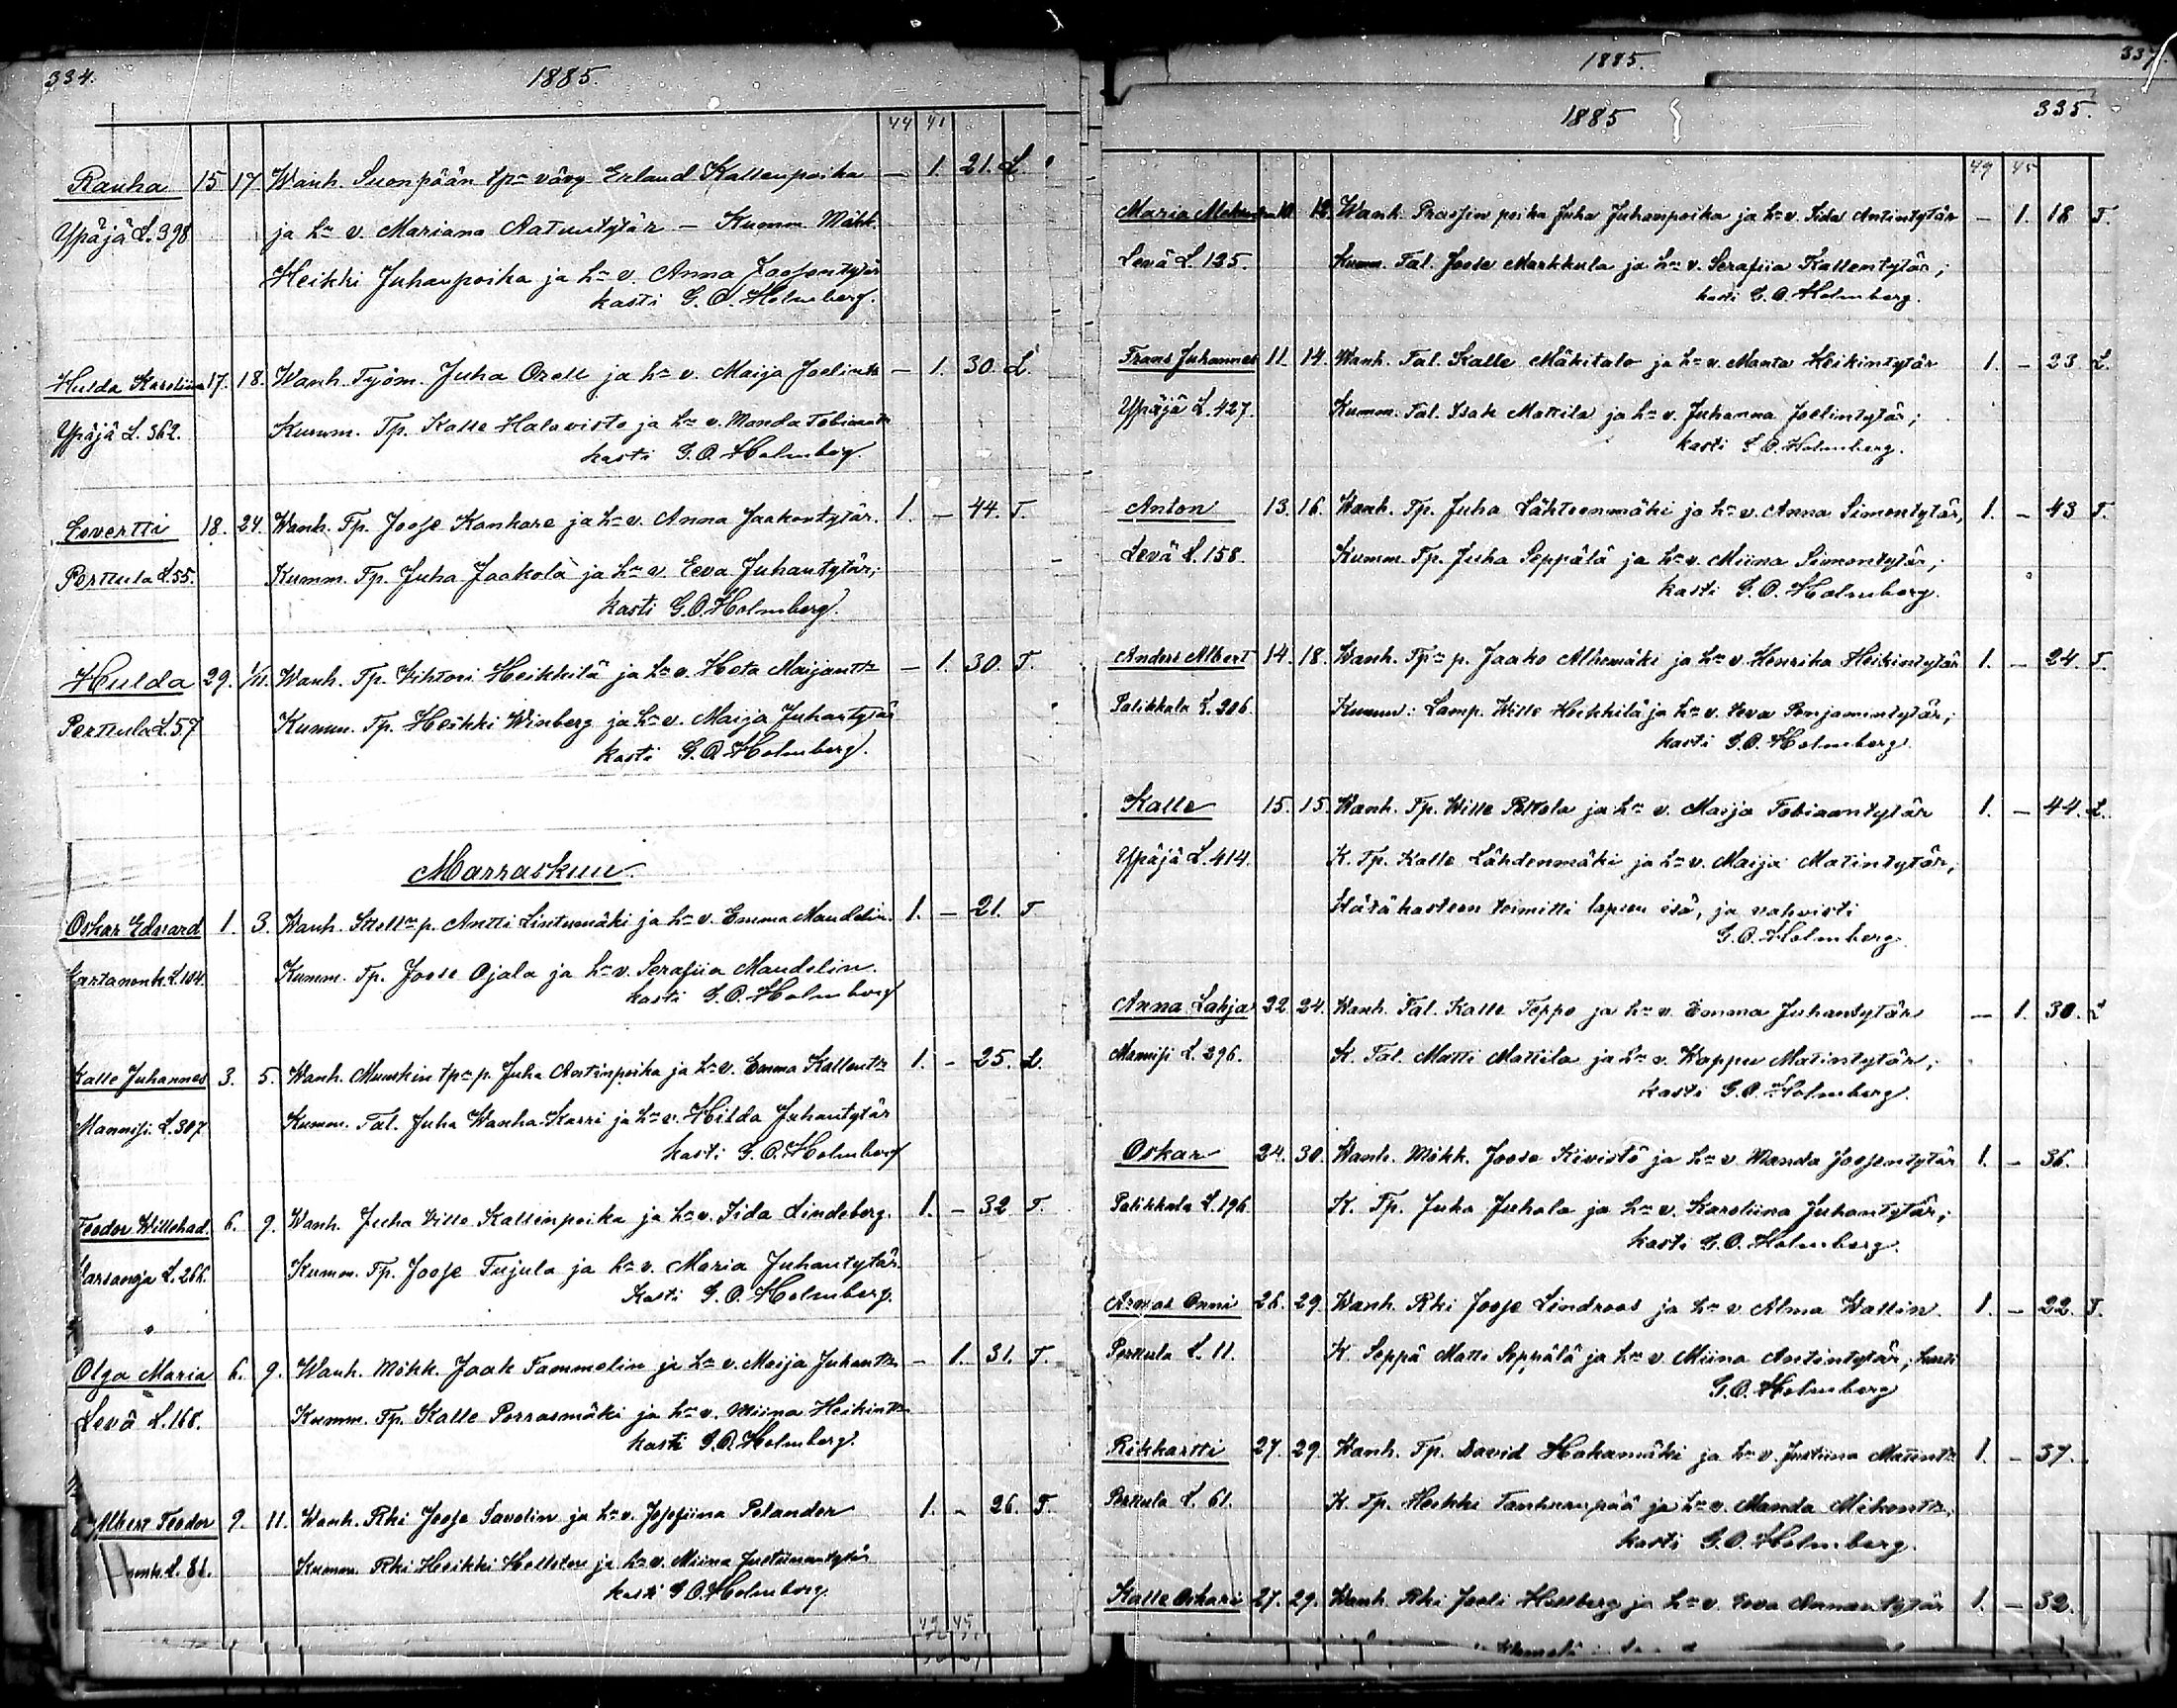 334. 1885.
44 41
Rauha 15 17 Wanh. Suonpään tp:n vävy Erland Kallenpoika — 1. 21. L.
Ypäjä L. 398 ja h:n v. Mariana Aatuntytär — Kumm. Mökk.
Heikki Juhanpoika ja h:n v. Anna Joosentytär
kasti G. O. Holmberg.
Hulda Karoliina 17. 18. Wanh. Työm. Juha Orell ja h:n v. Maija Joelintr — 1. 30. L.
Ypäjä L. 362. Kumm. Tp. Kalle Halavisto ja h:n v. Manda Tobiaantr
kasti G. O. Holmberg.
Eevertti 18. 24. Wanh. Tp. Joose Kanhare ja h:n v. Anna Jaakontytär. 1. — 44. T.
Perttula L. 55. Kumm. Tp. Juha Jaakola ja h:n v. Eeva Juhantytär;
kasti G. O. Holmberg.
Hulda 29. 1/11. Wanh. Tp. Vihtori Heikkilä ja h:n v. Heta Maijantr — 1. 30. T.
Perttula L. 57 Kumm. Tp. Heikki Winberg ja h:n v. Maija Juhantytär
kasti G. O. Holmberg.
Marraskuu.
Oskar Edvard 1. 3. Wanh. p. Antti Lintumäki ja h:n v. Emma Mandelin. 1. — 21. T
Kartanonk. L. 104. Kumm. Tp. Joose Ojala ja h:n v. Serafiia Mandelin.
kasti G. O. Holmberg
Kalle Juhannes 3. 5. Wanh. Munskin tp:n p. Juha Antinpoika ja h:n v. Emma Kallentr 1. — 25. L.
Mannisi. L. 307 Kumm. Tal. Juha Wanha-Karri ja h:n v. Hilda Juhantytär
kasti G. O. Holmberg
Teodor Willehad. 6. 9. Wanh. Juha Wille Kallenpoika ja h:n v. Iida Lindeberg. 1. — 32 T.
Varsanoja L. 266. Kumm. Tp. Joose Tujula ja h:n v. Maria Juhantytär.
Kasti G. O. Holmberg.
Olga Maria 6. 9. Wanh. Mökk. Jaak Tammelin ja h:n v. Maija Juhantr — 1. 31. T.
Levä L. 168. Kumm. Tp. Kalle Porrasmäki ja h:n v. Miina Heikintr
kasti G. O. Holmberg.
Albert Teodor 9. 11. Wanh. Rki Joose Savolin ja h:n v. Josefiina Polander 1. — 26. T.
L. 81. Kumm. Rki Heikki Hellsten ja h:n v. Miina Justiinantytär
kasti G. O. Holmberg.
49 45
1885. 337.
1885 335.
49 45
Maria 10 12. Wanh. Prassin poika Juha Juhanpoika ja h:n v. Iida Antintytär — 1. 18 T.
Levä L. 135. Kumm. Tal. Joose Markkula ja h:n v. Serafiia Kallentytär;
kasti G. O. Holmberg.
Frans Juhannes 11. 14. Wanh. Tal. Kalle Mäkitalo ja h:n v. Manta Heikintytär 1. — 23 L.
Ypäjä L. 427. Kumm. Tal. Isak Mattila ja h:n v. Juhanna Joelintytär;
kasti G. O. Holmberg.
Anton 13. 16. Wanh. Tp. Juha Lähteenmäki ja h:n v. Anna Simontytär, 1. — 43 T.
Levä L. 158. Kumm. Tp. Juha Seppälä ja h:n v. Miina Simontytär;
kasti G. O. Holmberg.
Anders Albert 14. 18. Wanh. Tp:n p. Jaako Alhomäki ja h:n v. Henrika Heikintytär 1. — 24. T.
Palikkala L. 206. Kumm: Lamp. Wille Heikkilä ja h:n v. Eeva Penjamintytär;
kasti G. O. Holmberg.
Kalle 15. 15. Wanh. Tp. Wille Pottola ja h:n v. Maija Tobiaantytär 1. — 44. L.
Ypäjä L. 414. K. Tp. Kalle Lähdenmäki ja h:n v. Maija Matintytär;
Hätäkasteen toimitti lapsen isä, ja vahvisti
G. O. Holmberg.
Anna Lahja 22. 24. Wanh. Tal. Kalle Teppo ja h:n v. Emma Juhantytär — 1. 30. L
Mannisi L. 296. K. Tal. Matti Mattila ja h:n v. Wappu Matintytär;
kasti G. O. Holmberg.
Oskar 24. 30. Wanh. Mökk. Joose Kivistö ja h:n v. Wanda Joosentytär 1. — 36.
Palikkala L. 196. K. Tp. Juha Juhola ja h:n v. Karoliina Juhantytär;
kasti G. O. Holmberg.
Armas Onni 26. 29. Wanh. Rki Joose Lindroos ja h:n v. Alma Wallin. 1. — 22. T.
Perttula L. 11. K. Seppä Matti Seppälä ja h:n v. Miina Antintytär; kasti
G. O. Holmberg
Rikhartti 27. 29. Wanh. Tp. David Hakamäki ja h:n v. Justiina Matintr 1. — 37.
Perttula L. 61. K. Tp. Heikki Tanhuanpää ja h:n v. Manda Mikontr.
kasti G. O. Holmberg.
Kalle Oskari 27. 29. Wanh. Rki Joeli Hellberg ja h:n v. Eeva Annantytär 1. — 32.